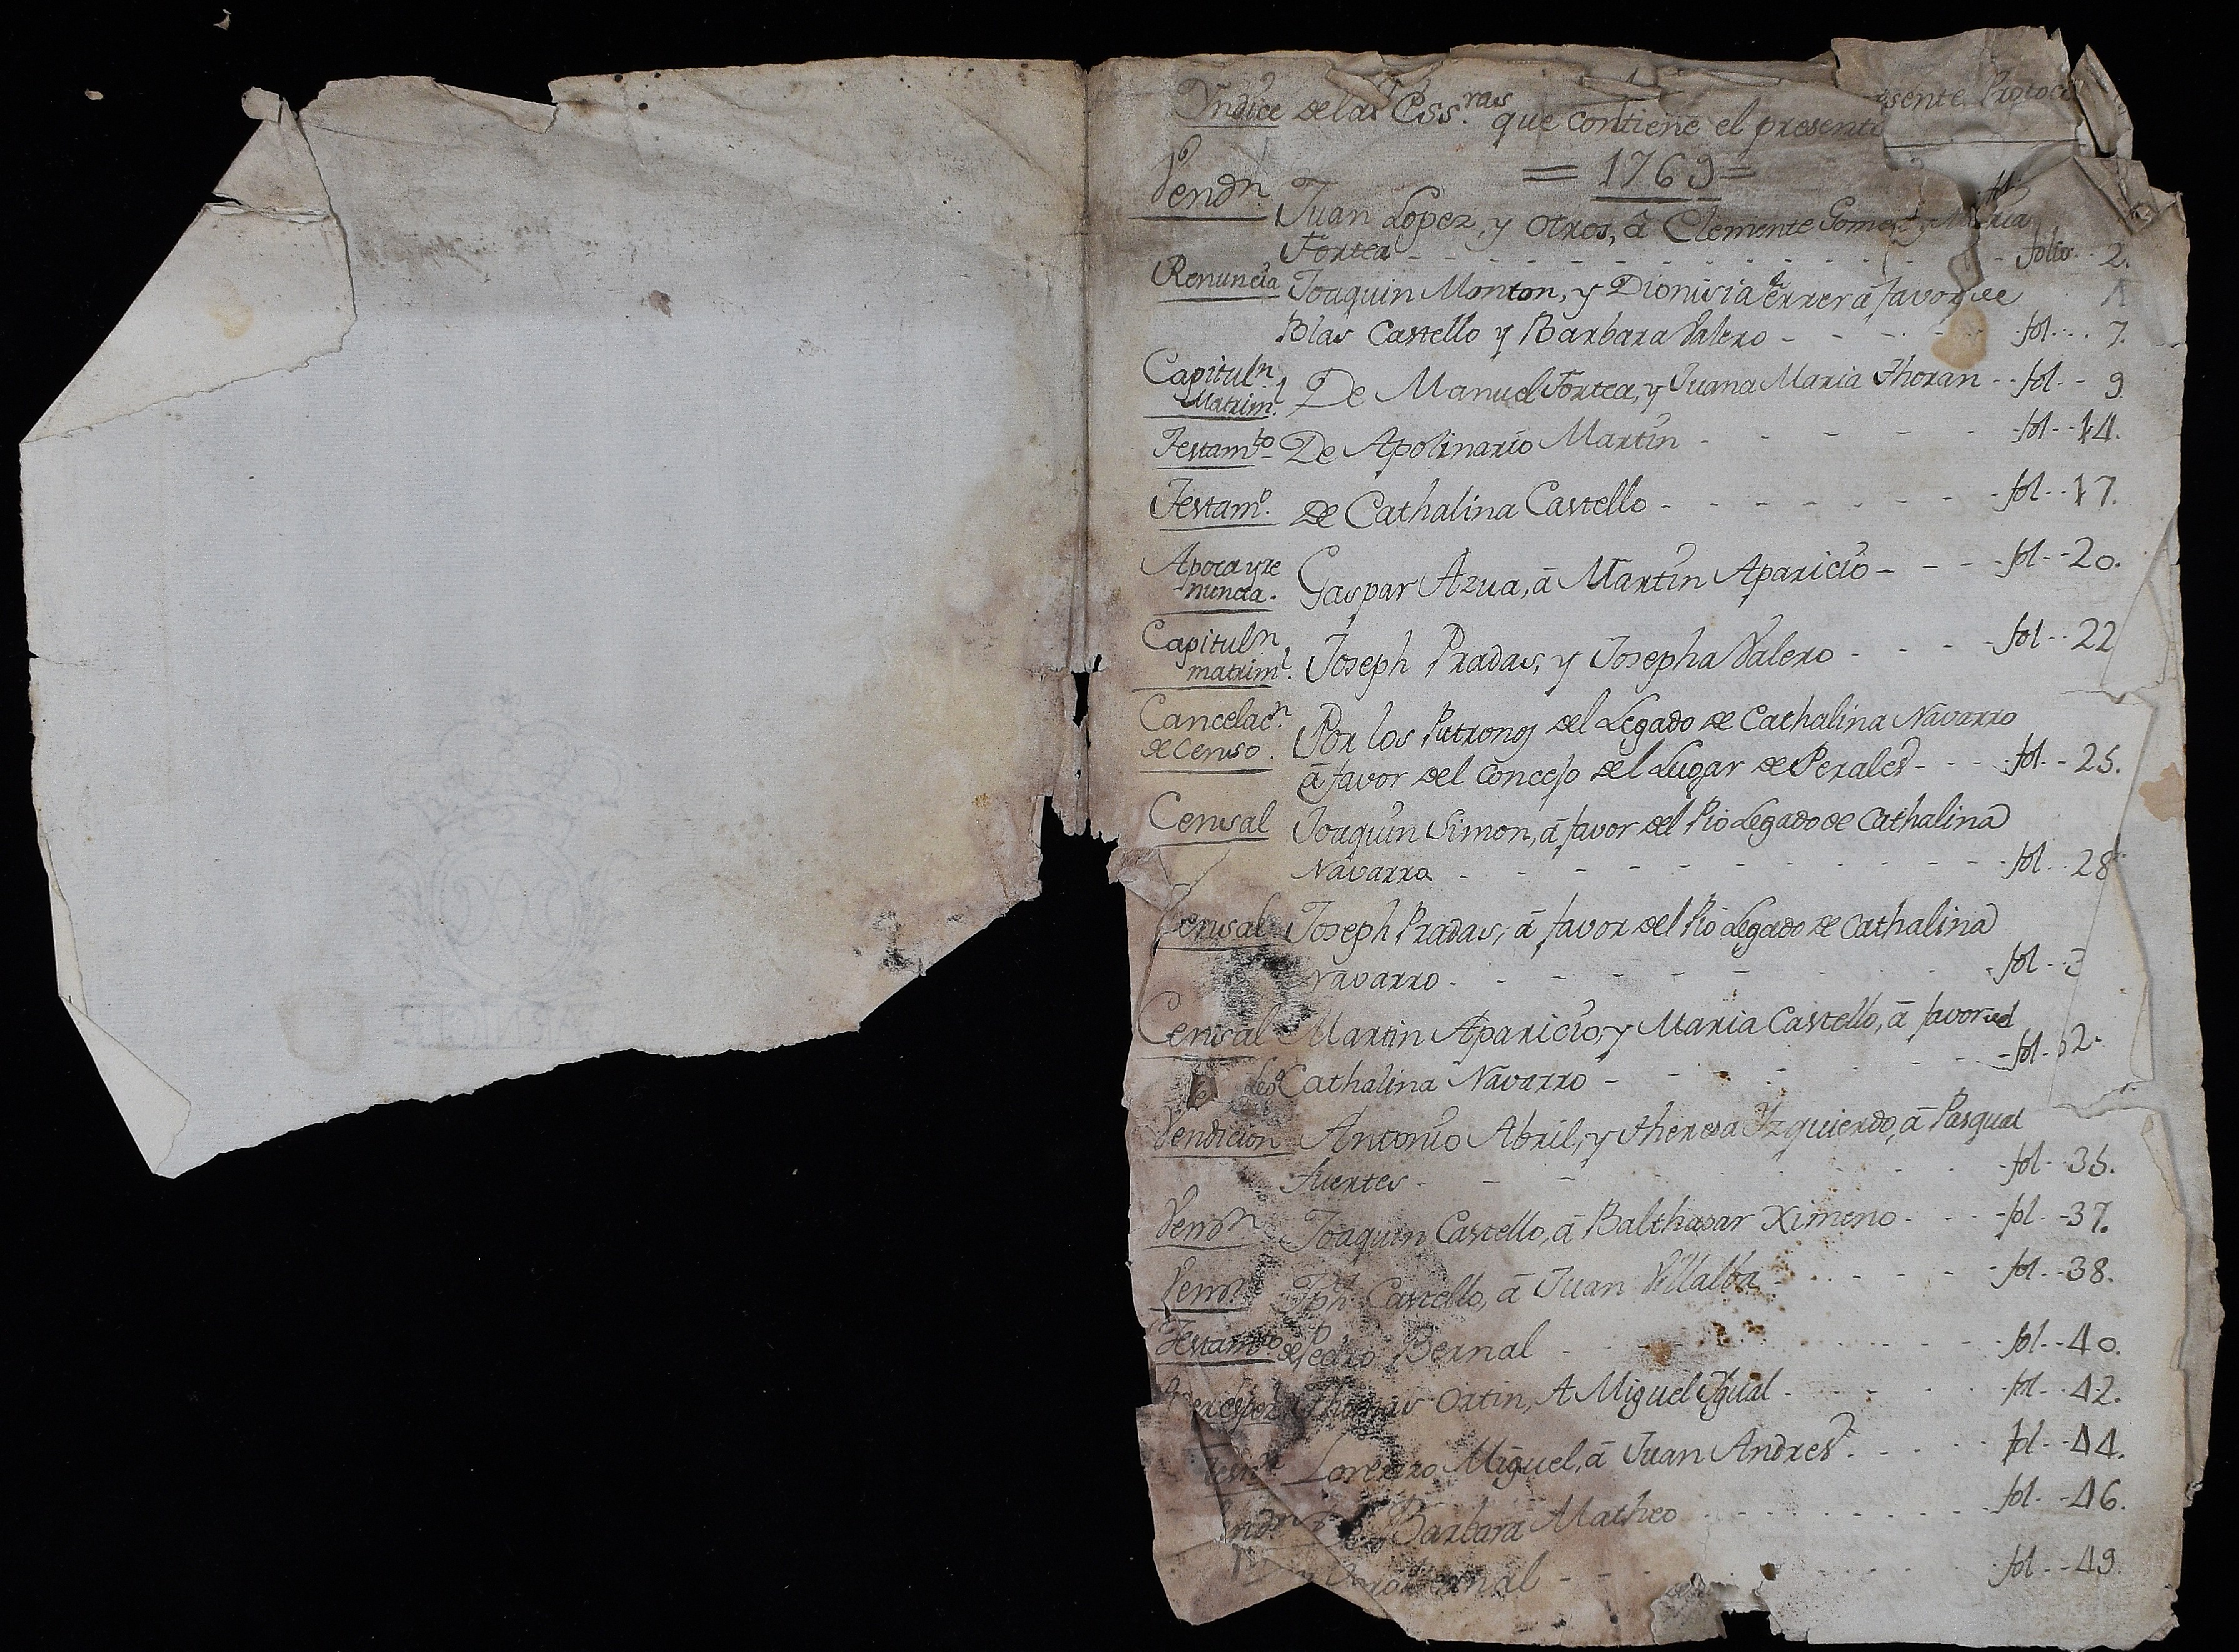 Yndice de las Ess.ras que contiene el presente Protoco
= 1769 =
Vendn. Juan Lopez, y otros, â Clemente Gomez y Maria
Fortea - - - folio - 2.
Renuncia Joaquin Monton, y Dionisia Ferrer â favor de
Blas Castello y Barbara Valero - - - fol - 7.
Capituln.
Matriml. De Manuel Fortea, y Juana Maria Thoran - - fol - 9
Testamto. De Apolinario Martin - - - fol - 14.
Testamo. De Cathalina Castello - - - fol - 17.
Apoca y re
nuncia. Gaspar Azua, â Martin Aparicio - - - fol - 20.
Capituln.
matriml. Joseph Pradas, y Josepha Valero - - - fol - 22
Cancelacn.
de Censo. Por los Patronos del Legado de Cathalina Navarro
â favor del Concejo del Lugar de Perales - - - fol - 25.
Censal Joaquin Simon, â favor del Pio Legado de Cathalina
Navarro - - - fol - 28
Censal Joseph Pradas, â favor del Pio Legado de Cathalina
Navarro - - - fol - 3
Censal Martin Aparicio, y Maria Castello, â favor del
Lego. Cathalina Navarro - - - fol - 2.
Vendicion Antonio Abril, y Theresa Yzquierdo, â Pasqual
fuertes - - - fol - 35.
Vendn. Joaquin Castello, â Balthasar Ximeno - - - fol - 37.
Vendn. Jph. Castello, â Juan Villalba - - - fol - 38.
Testamto. de Pedro Bernal - - - fol - 40.
Thomas Ortin, A Miguel Ygual - - - fol - 42.
Lorenzo Miguel, â Juan Andres - - - fol - 44.
Barbara Matheo - - - fol - 46.
Bernal - - - fol - 49